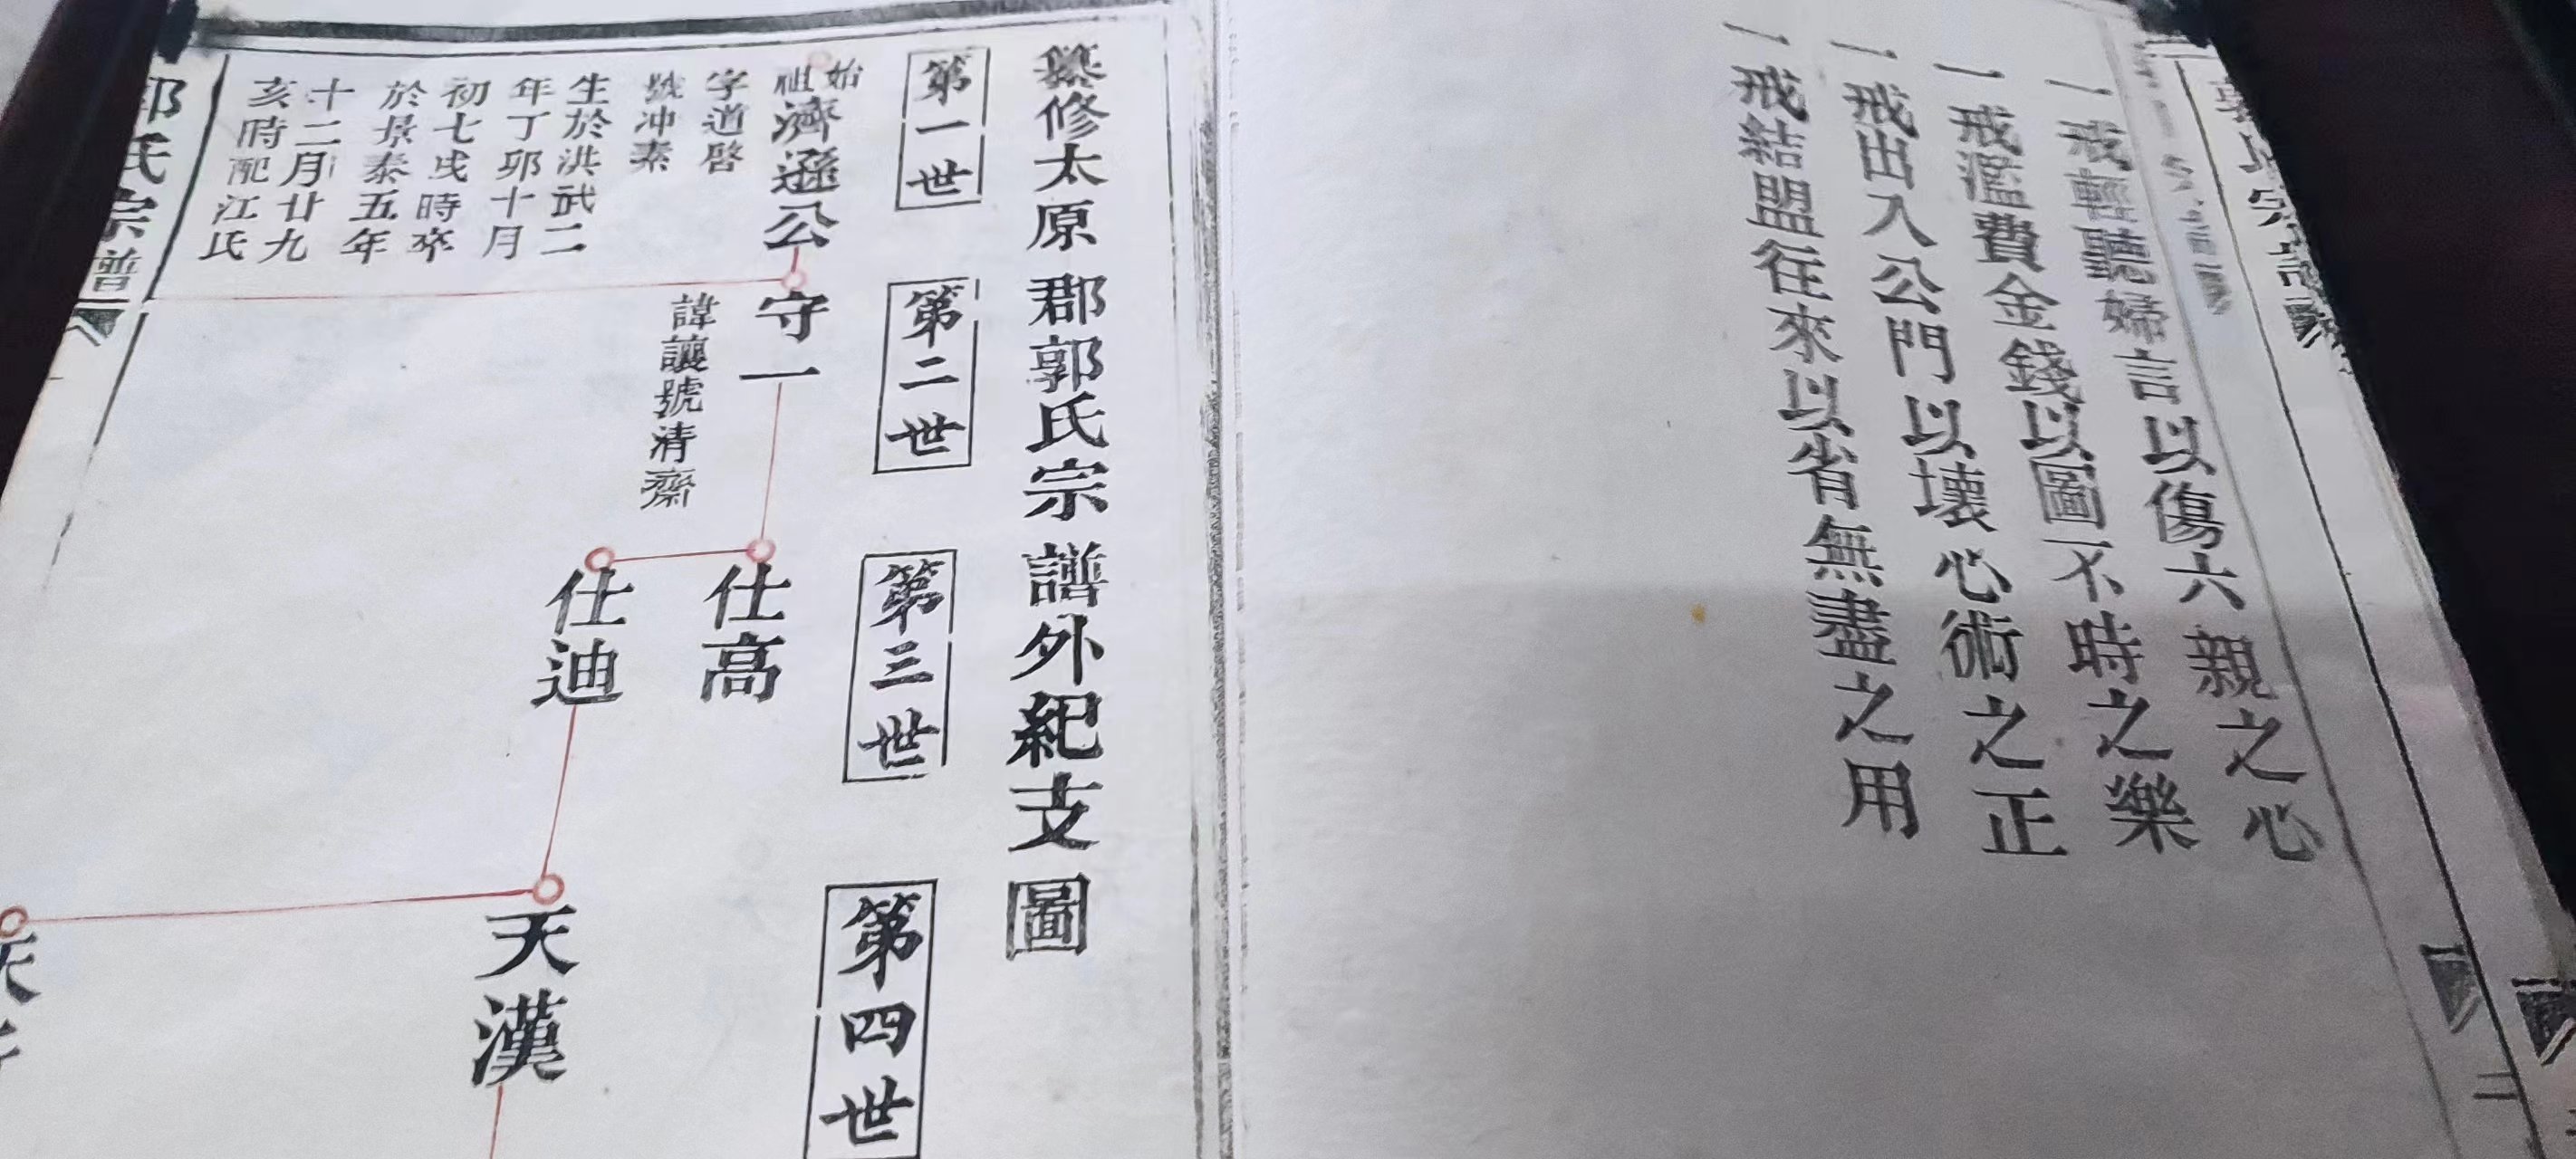 郭氏宗譜
一戒輕聽婦言以傷六親之心
一戒濫費金錢以圖不時之樂
一戒出入公門以壞心術之正
一戒結盟往來以省無盡之用
纂修太原郡郭氏宗譜外紀支圖
第一世
第二世
第三世
第四世
始祖濟遜公
字道啓
號冲素
生於洪武二
年丁卯十月
初七戌時卒
於景泰五年
十二月廿九
亥時配江氏
守一
諱讓號清齋
仕高
仕迪
天漢
郭氏宗譜
二